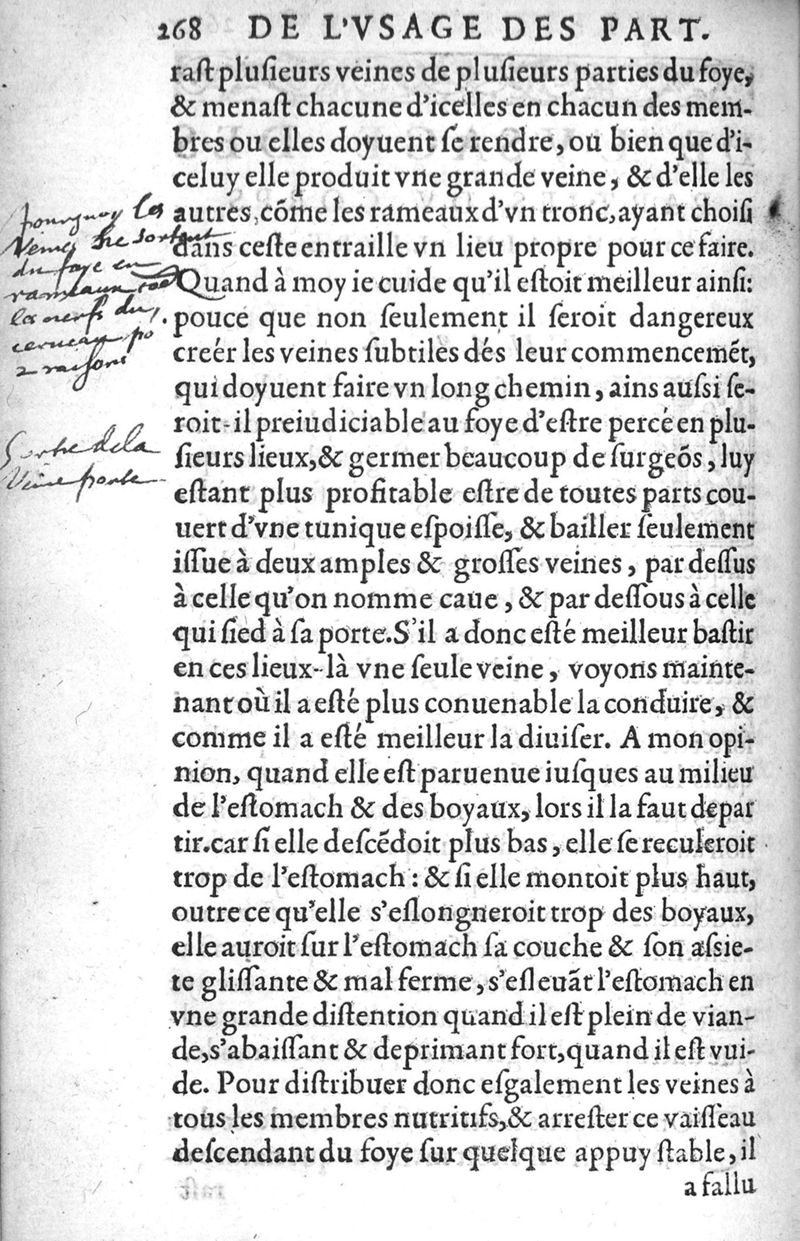 268 DE L'VSAGE DES PART.
raſt pluſieurs veines de pluſieurs parties du foye,
& menaſt chacune d'icelles en chacun des mem-
bres ou elles doyuent ſe rendre, ou bien que d'i-
celuy elle produit vne grande veine, & d'elle les
autres, cõme les rameaux d'vn tronc, ayant choiſi
dans ceſte entraille vn lieu propre pour ce faire.
Quand à moy ie cuide qu'il eſtoit meilleur ainſi:
pource que non ſeulement il ſeroit dangereux
creér les veines ſubtiles dés leur commencemẽt,
qui doyuent faire vn long chemin, ains auſsi ſe-
roit-il preiudiciable au foye d'eſtre percé en plu-
ſieurs lieux, & germer beaucoup de ſurgeõs, luy
eſtant plus profitable eſtre de toutes parts cou-
uert d'vne tunique eſpoiſſe, & bailler ſeulement
iſſue à deux amples & groſſes veines, par deſſus
à celle qu'on nomme caue, & par deſſous à celle
qui ſied à ſa porte. S'il a donc eſté meilleur baſtir
en ces lieux-là vne ſeule veine, voyons mainte-
nant où il a eſté plus conuenable la conduire, &
comme il a eſté meilleur la diuiſer. A mon opi-
nion, quand elle eſt paruenue iuſques au milieu
de l'eſtomach & des boyaux, lors il la faut depar
tir. car ſi elle deſcẽdoit plus bas, elle ſe reculeroit
trop de l'eſtomach : & ſi elle montoit plus haut,
outre ce qu'elle s'eſlongneroit trop des boyaux,
elle auroit ſur l'eſtomach ſa couche & ſon aſsie-
te gliſſante & mal ferme, s'eſleuãt l'eſtomach en
vne grande diſtention quand il eſt plein de vian-
de, s'abaiſſant & deprimant fort, quand il eſt vui-
de. Pour diſtribuer donc eſgalement les veines à
tous les membres nutritifs, & arreſter ce vaiſſeau
deſcendant du foye ſur quelque appuy ſtable, il
a fallu
pourquoy les
veines ne sortent
du foye en
rameaux
les nerfs du
cerueau po
2 raisons
Sortie de la
Veine porte